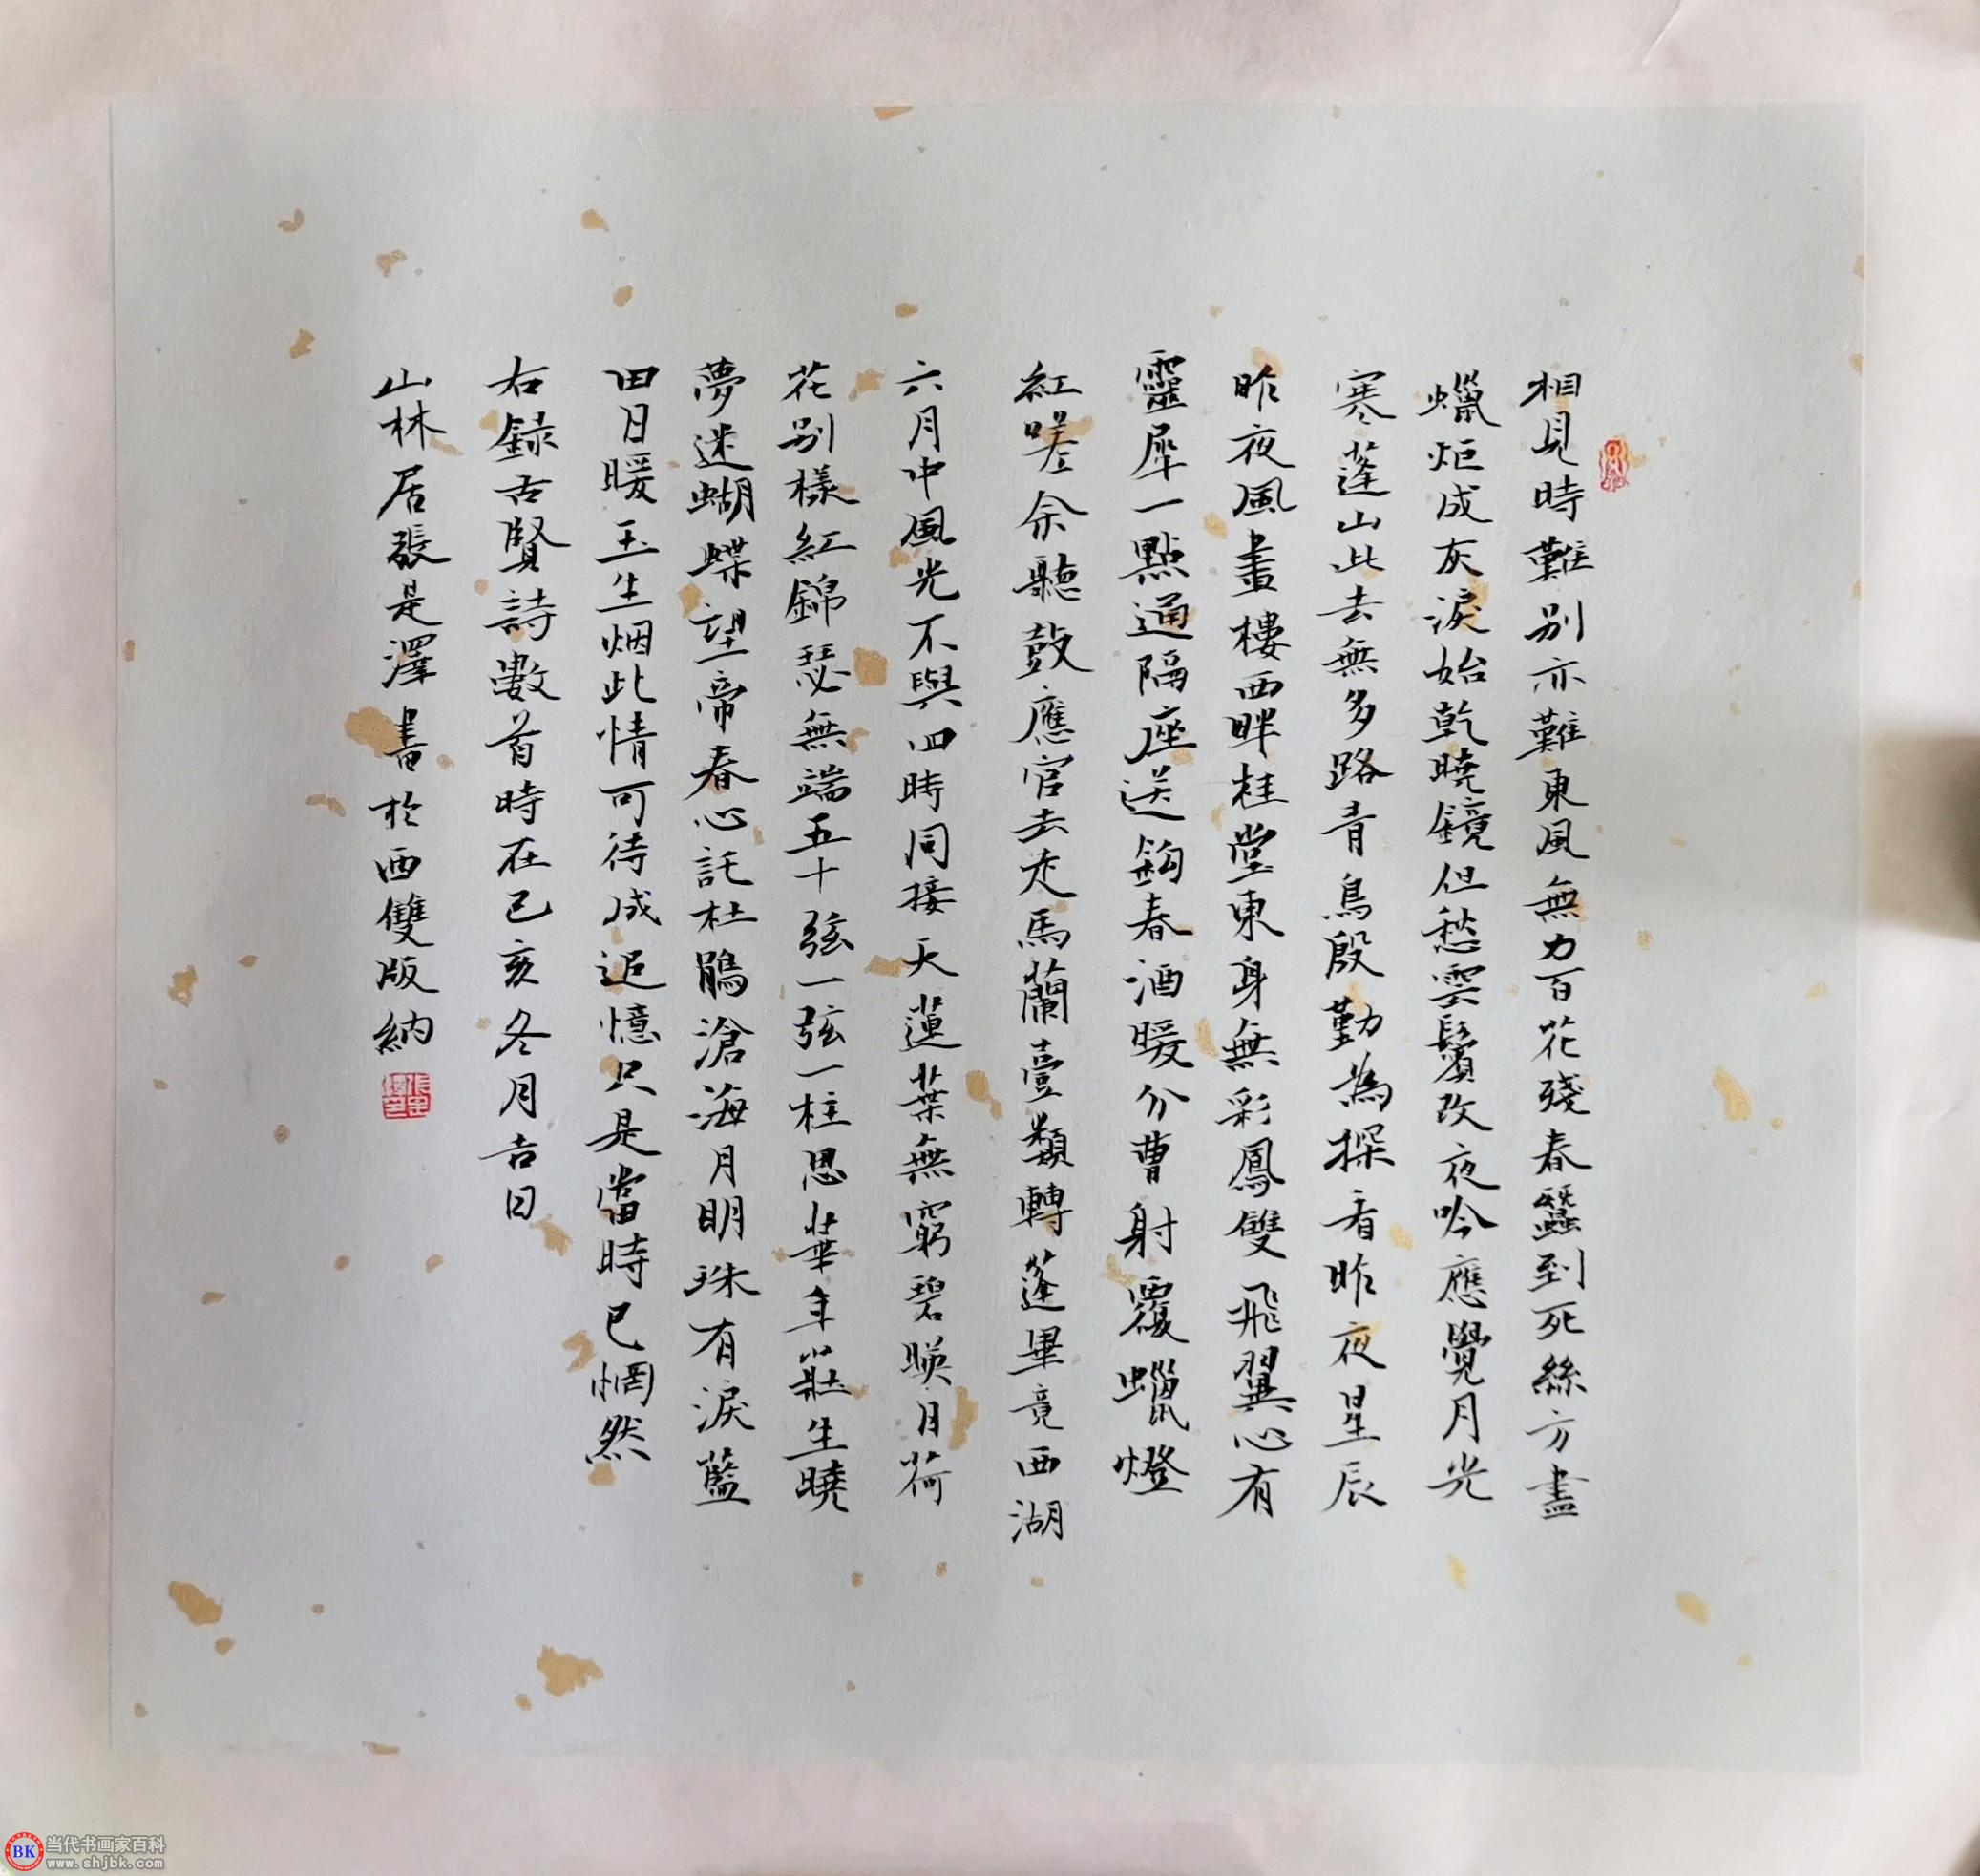 相見時難别亦難東風無力百花殘春蠶到死絲方盡
蠟炬成灰淚始乾曉鏡但愁雲鬢改夜吟應覺月光
寒蓬山此去無多路青鳥殷勤為探看昨夜星辰
昨夜風畫樓西畔桂堂東身無彩鳳雙飛翼心有
靈犀一點通隔座送鈎春酒暖分曹射覆蠟燈
紅嗟余聽鼓應官去走馬蘭臺類轉蓬畢竟西湖
六月中風光不與四時同接天蓮葉無窮碧暎月荷
花别樣紅錦瑟無端五十弦一弦一柱思華年莊生曉
夢迷蝴蝶望帝春心託杜鵑滄海月明珠有淚藍
田日暖玉生烟此情可待成追憶只是當時已惘然
右録古賢詩數首時在己亥冬月吉日
山林居張是澤書於西雙版納
BK 当代书画家百科
www.shjbk.com